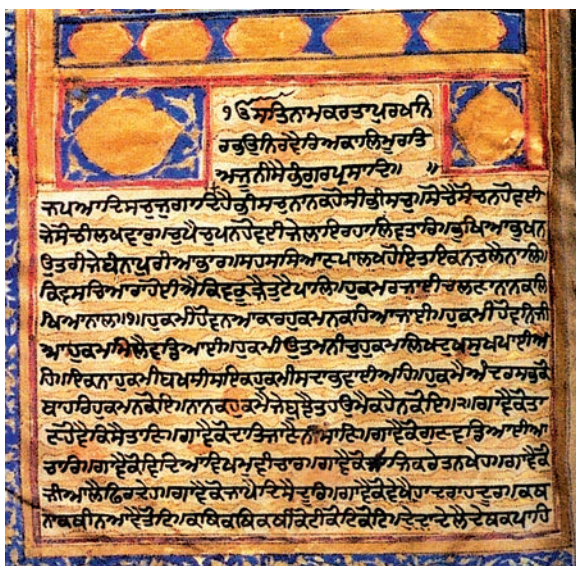 ੧ੳ ਸਤਿਨਾਮਕਰਤਾਪੁਰਖਨਿ
ਰਭਉਨਿਰਵੈਰਿਅਕਾਲਿਮੂਰਤਿ
ਅਜੂਨੀਸੈਭੰਗੁਰਪ੍ਰਸਾਦਿ॥ ॥
ਜਪਆਦਿਸਚੁਜੁਗਾਦਿਹੈਭੀਸਚੁਨਾਨਕਹੋਸੀਭੀਸਚੁ॥ਸੋਚੈਸੋਚਨਹੋਵਈ
ਜੇਸੋਚੀਲਖਵਾਰ॥ਚੁਪੈਚੁਪਨਹੋਵਈਜੇਲਾਇਰਹਾਲਿਵਤਾਰਿ॥ਭੁਖਿਆਭੁਖਨ
ਉਤਰੀਜੇਬੰਨਾਪੁਰੀਆਭਾਰ॥ਸਹਸਸਿਆਣਪਾਲਖਹੋਇਤਇਕਨਚਲੈਨਾਲਿ॥
ਕਿਵਸਚਿਆਰਾਹੋਈਐਕਿਵਕੂੜੈਤੁਟੈਪਾਲਿ॥ਹੁਕਮਰਜਾਈਚਲਣਾਨਾਨਕਲਿ
ਖਿਆਨਾਲਿ॥੧॥ਹੁਕਮੀਹੋਵਨਆਕਾਰਹੁਕਮਨਕਹਿਆਜਾਈ॥ਹੁਕਮੀਹੋਵਨਿਜੀ
ਅਹੁਕਮਿਮਿਲੈਵਡਿਆਈ॥ਹੁਕਮੀਉਤਮਨੀਚੁਹੁਕਮਲਿਖਦੁਖਸੁਖਪਾਈਅ
ਹਿ॥ਇਕਨਾਹੁਕਮੀਬਖਸੀਸਇਕਹੁਕਮੀਸਦਾਭਵਾਈਅਹਿ॥ਹੁਕਮੈਅੰਦਰਸਭਕੋ
ਬਾਹਰਿਹੁਕਮਨਕੋਇ॥ਨਾਨਕਹੁਕਮੈਜੇਬੁਝੈਤਹਉਮੈਕਹੈਨਕੋਇ॥੨॥ਗਾਵੈਕੋਤਾ
ਣਹੋਵੈਕਿਸੈਤਾਣਿ॥ਗਾਵੈਕੋਦਾਤਿਜਾਣੈਨੀਸਾਣਿ॥ਗਾਵੈਕੋਗੁਣਵਡਿਆਈਆ
ਚਾਰ॥ਗਾਵੈਕੋਵਿਦਿਆਵਿਖਮੁਵੀਚਾਰ॥ਗਾਵੈਕੋਸਾਜਿਕਰੇਤਨਖੇਹ॥ਗਾਵੈਕੋ
ਜੀਅਲੈਫਿਰਦੇਹ॥ਗਾਵੈਕੋਜਾਪੈਦਿਸੈਦੂਰਿ॥ਗਾਵੈਕੋਵੇਖੈਹਾਦਰਾਹਦੂਰ॥ਕਥ
ਨਾਕਥੀਨਆਵੈਤੋਟਿ॥ਕਥਿਕਥਿਕਥੀਕੋਟੀਕੋਟਿਕੋਟਿ॥ਦੇਦਾਦੇਲੈਦੇਥਕਪਾਹਿ